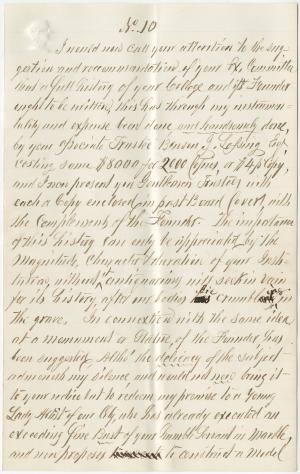 No. 10
I would now call your attention to the sug-
gestion and recommendation of your Ex. Committee
that a full history of your College and its Founder
ought to be written, this has through my instrumen-
tality and expense been done and handsomely done,
by your Special Trustee Benson J. Lossing Esq
costing some $8000 for 2000 Copies, or $4 p Copy,
and I now present you Gentlemen Trustees with
each a Copy enclosed in post Board Cover, with
the Compliments of the Founder. The importance
of this history can only be appreciated by the
Magnitude, Character & duration of your Insti-
tution, without it antiquarians will seek in vain
for its history, after our bodies are crumbled in
the grave. In connection with the same idea
a monument or Statue of the Founder, has
been suggested, altho' the delicacy of the subject
admonish my silence, and would not now bring it
to your notice but to redeem my promise to a Young
Lady Artist of our City who has already executed an
exceeding fine Bust of your humble Servant in Marble,
and now proposes to construct a Model